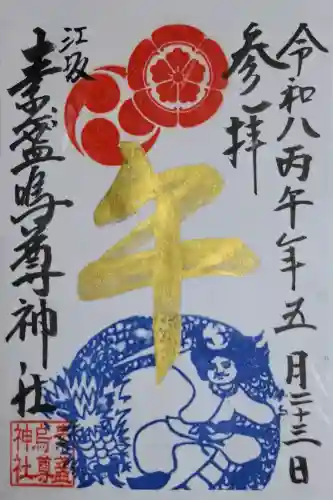 令和八丙午年五月二十三日
参拝
午
江坂
素盞嗚尊神社
素盞
烏尊
神社